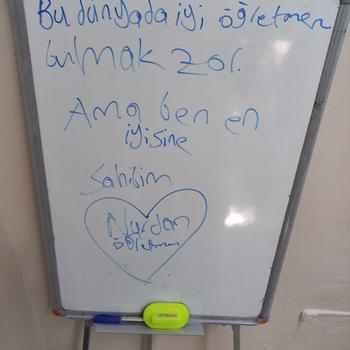 Bu dünyada iyi öğretmen
bulmak zor.
Ama ben en
iyisine
sahibim
Nurdan
öğretmen